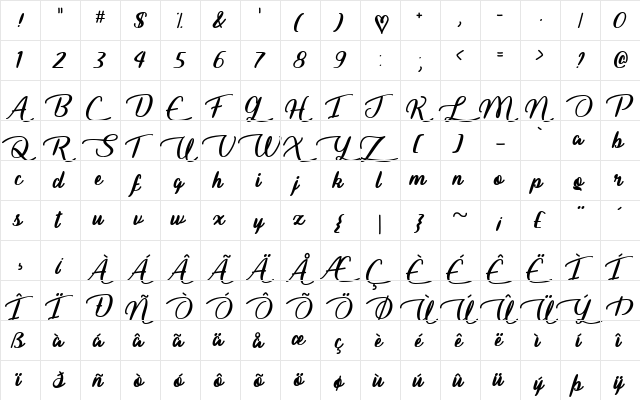 ! " # $ % & ' ( ) ♡ + , - . / 0
1 2 3 4 5 6 7 8 9 : ; < = > ? @
A B C D E F G H I J K L M N O P
Q R S T U V W X Y Z [ ] _ ` a b
c d e f g h i j k l m n o p q r
s t u v w x y z { | } ~ ¡ £ ¨ ´
¸ í À Á Â Ã Ä Å Æ Ç È É Ê Ë Ì Í
Î Ï Ð Ñ Ò Ó Ô Õ Ö Ø Ù Ú Û Ü Ý Þ
ß à á â ã ä å æ ç è é ê ë ì í î
ï ð ñ ò ó ô õ ö ø ù ú û ü ý þ ÿ